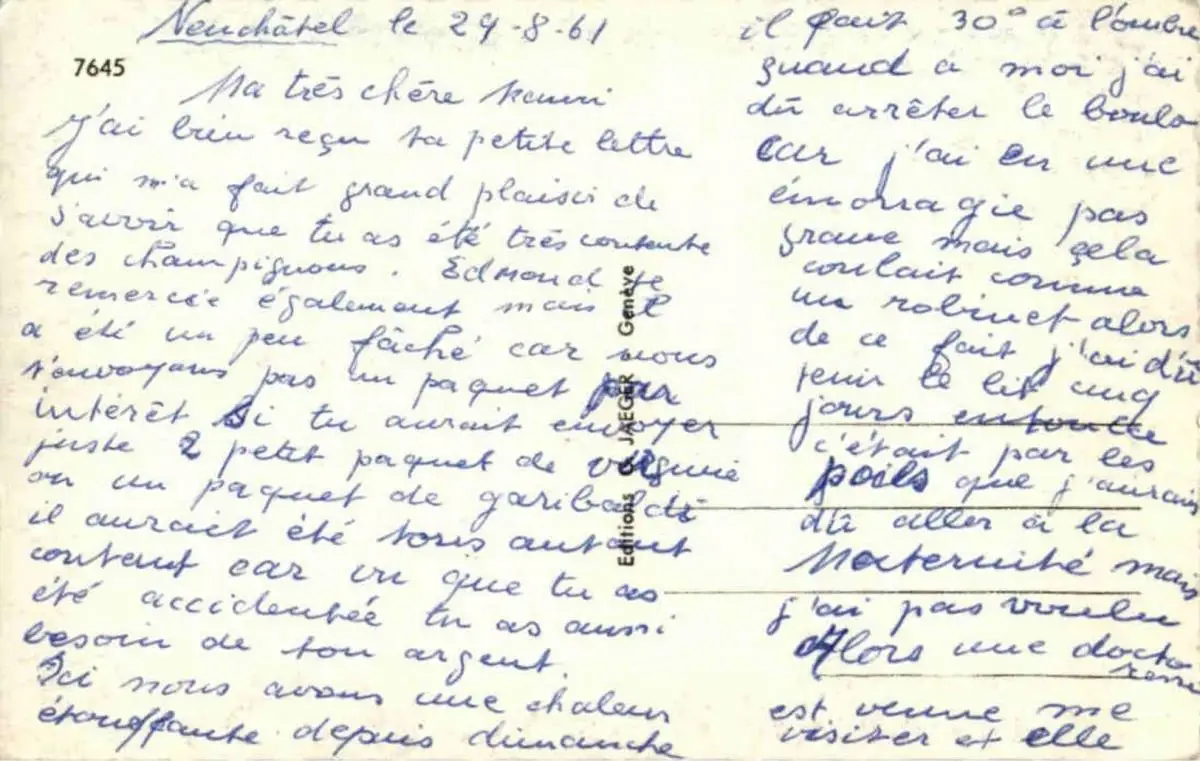 Neuchâtel le 29-8-61
7645
Ma très chère Mamri
J'ai bien reçu ta petite lettre
qui m'a fait grand plaisir de
s'avoir que tu as été très contente
des champignons. Edmond te
remercie également mais il
a été un peu fâché car nous
t'envoyons pas un paquet par
intérêt Si tu aurait envoyer
juste 2 petit paquet de virginie
ou un paquet de garibaldi
il aurait été tous autant
content car vu que tu as
été accidentée tu as aussi
besoin de ton argent.
Ici nous avons une chaleur
étouffante depuis dimanche
Editions O. JAEGER Genève
il fait 30° à l'ombre
quand a moi j'ai
dû arrêter le boulo
car j'ai eu une
émorragie pas
grave mais çela
coulait comme
un robinet alors
de ce fait j'ai dû
tenir le lit cinq
jours entouce
c'était par les
poils que j'aurais
dû aller à la
Maternité mais
j'ai pas voulu
Alors une doctoresse
est venue me
visiter et elle